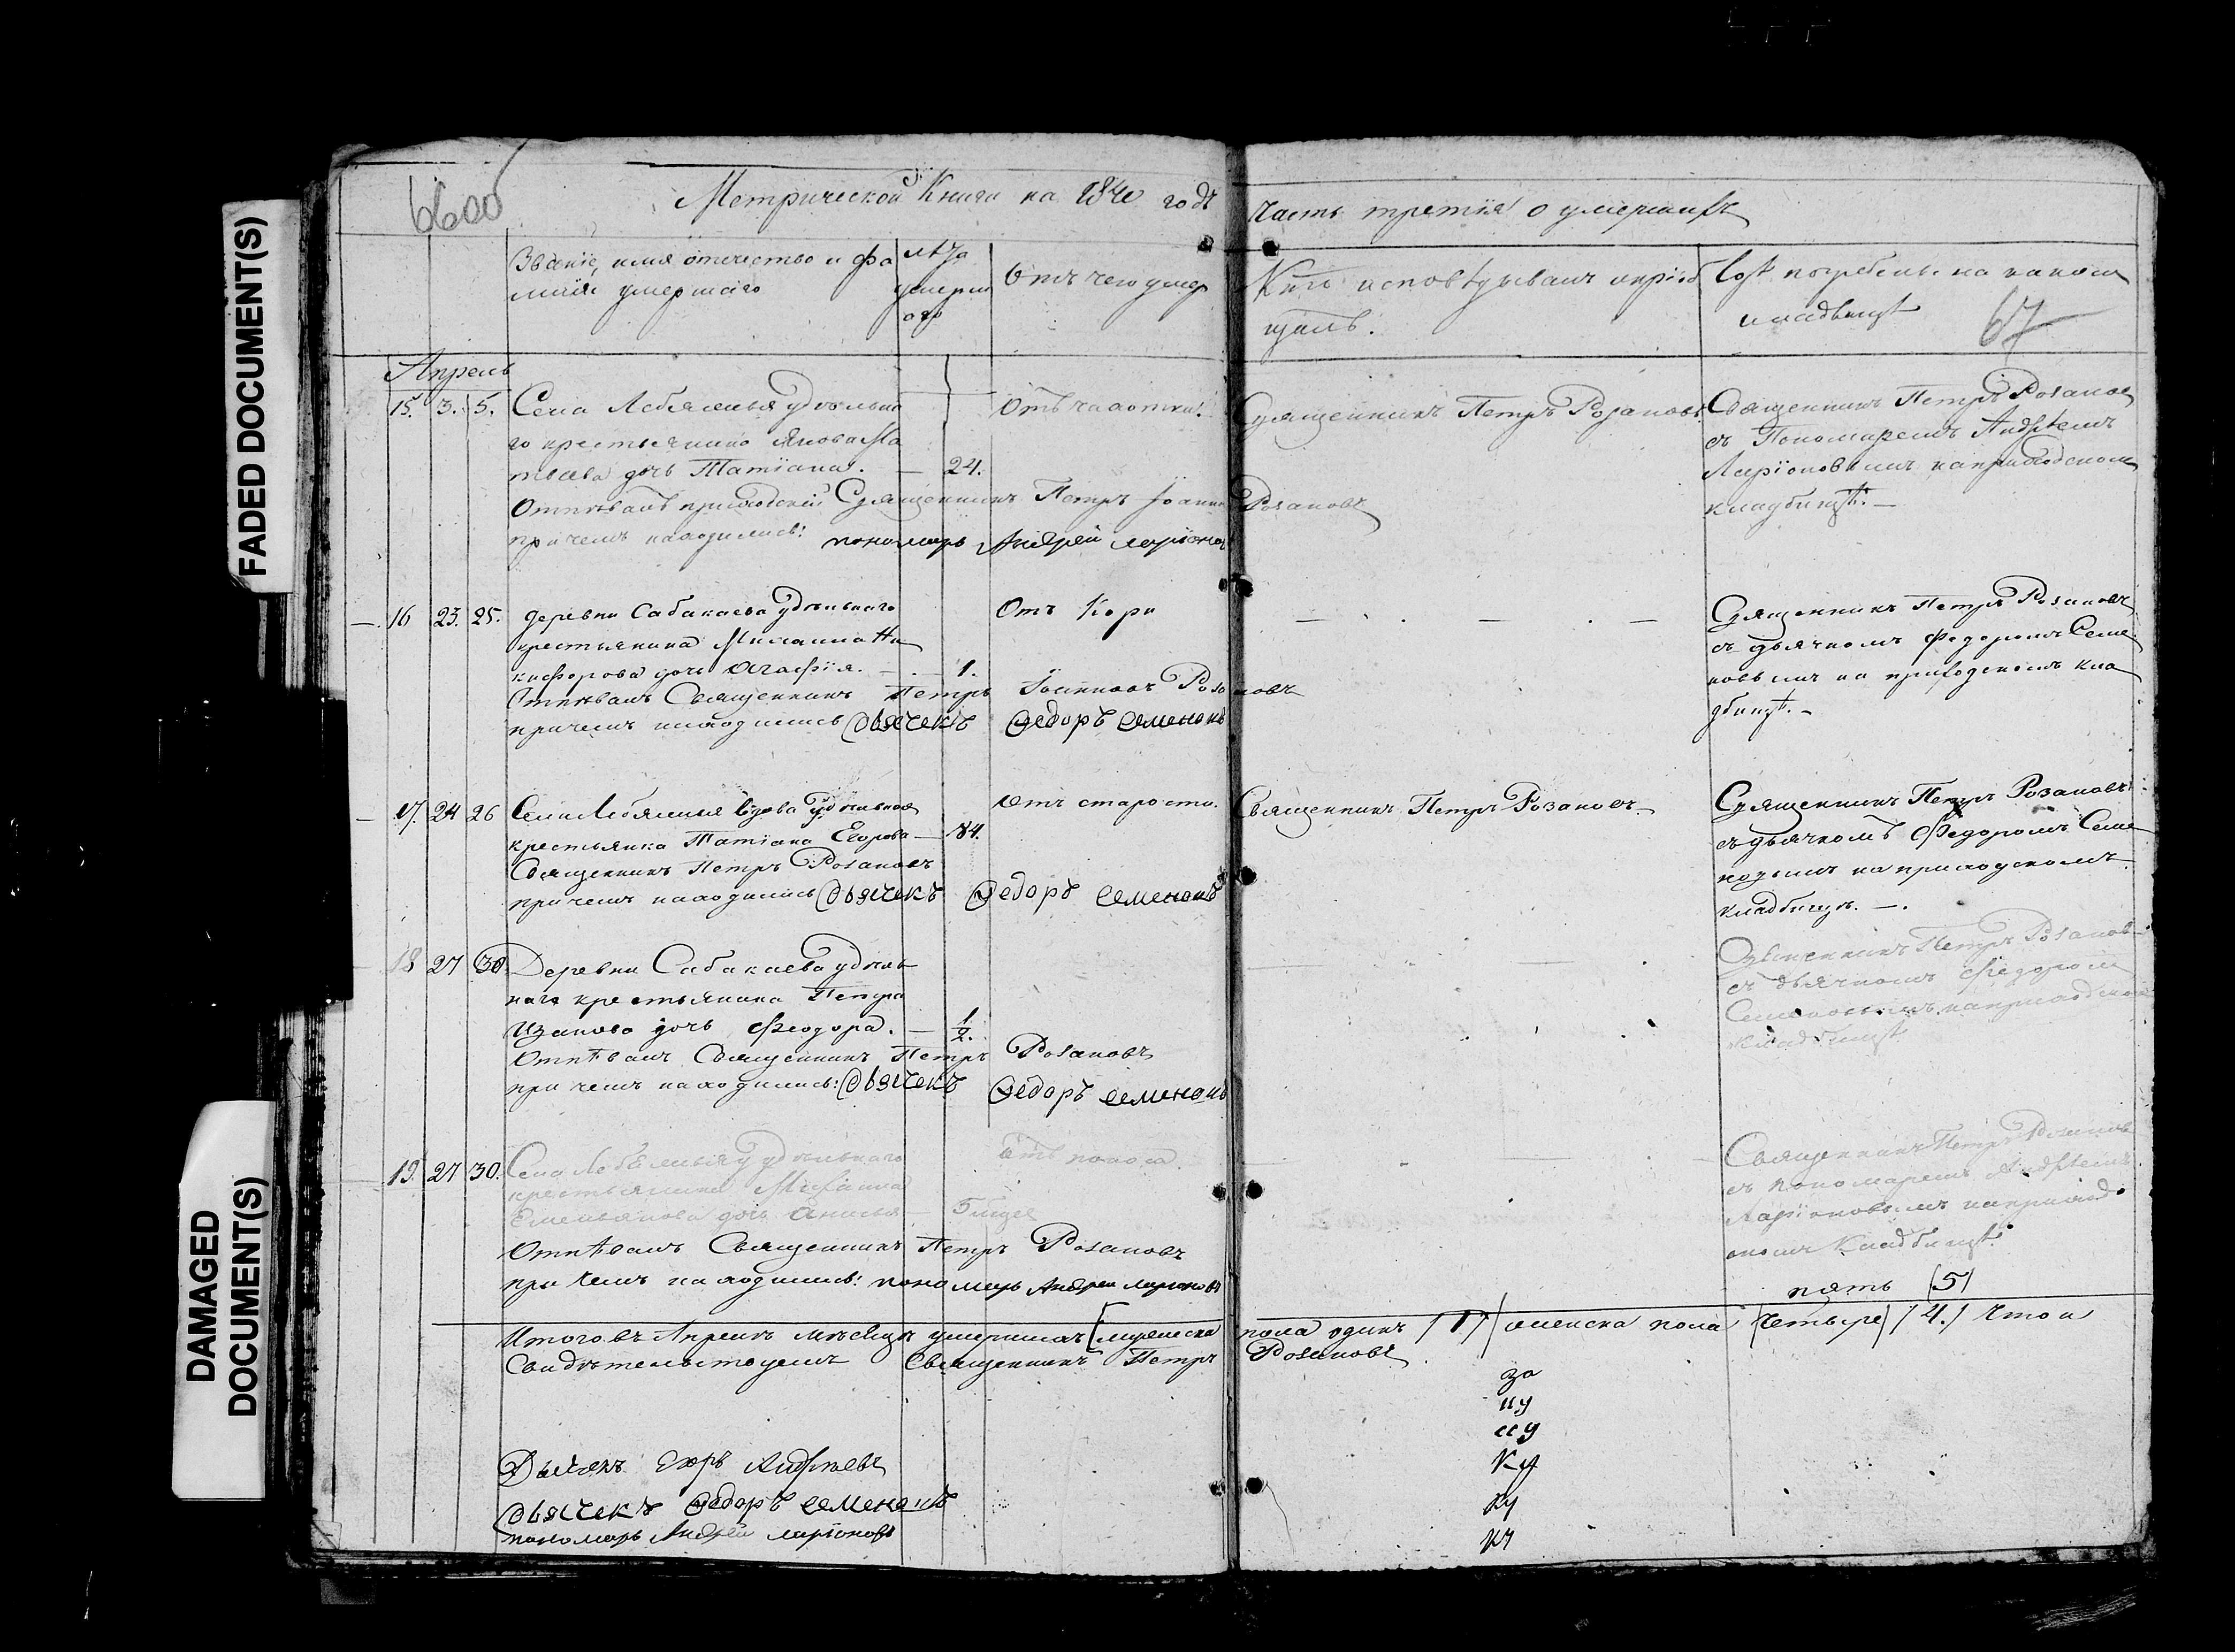 FADED DOCUMENT(S)
DAMAGED
DOCUMENT(S)
6600
Метрической Книги на 1840 годъ
часть третія о умершихъ
Званіе, имя отечество и фа
милія умершаго
лѣта
умерш
аго
Отъ чего умер
Кто исповѣдывалъ и пріоб
щалъ.
погребенъ. на каком
кладбищѣ
67
Апрель
15. 3. 5. Села Лебяжья удѣльна
го крестьянина Якова Ма
твѣева дочь Татіана. — 24.
Отъ чахотки.
Священникъ Петръ Розановъ
Священникъ Петръ Розанов
съ Пономаремъ Андреемъ
Ларіоновымъ на приходском
кладбищѣ. —
Отпѣвалъ приходскій Священникъ Петръ Іоанн Розановъ
при чемъ находились: пономарь Андрей Ларіонов
16 23. 25. деревни Сабакаева удѣльнаго
крестьянина Михаила Ни
кифорова дочь Агафія. — 1.
Отъ Кори
Священникъ Петръ Розановъ
съ дьячкомъ Федоромъ Семе
новымъ на приходскомъ кла
дбищѣ. —
Отпѣвалъ Священникъ Петръ Іоанновъ Розановъ
причемъ находились дьячекъ Ѳедоръ Семеновъ
17. 24 26 Села Лебяжья вдова удѣльная
крестьянка Татіана Егорова — 84.
отъ старости.
Священникъ Петръ Розановъ
Священникъ Петръ Розановъ
съ дьячкомъ Федоромъ Семе
новымъ на приходскомъ
кладбищѣ. —.
Священникъ Петръ Розановъ
при чемъ находились дьячекъ Ѳедоръ Семеновъ
18 27 30 Деревни Сабакаева удѣль
наго крестьянина Петра
Изанова дочь Феодора. — 1/2.
Священникъ Петръ Розанов
съ дьячкомъ Федоромъ
Семеновымъ на приходском
кладбищѣ
Отпѣвалъ Священникъ Петръ Розановъ
при чемъ находились: дьячекъ Ѳедоръ Семеновъ
19. 27 30. Села Лебяжья удѣльнаго
крестьянина Михаила
Емельянова дочь Анисья — 5 нидѣ
отъ поноса.
Священникъ Петръ Розанов
съ пономаремъ Андреемъ
Ларіоновымъ на приход
скомъ Кладбищѣ
Отпѣвалъ Священникъ Петръ Розановъ
при чемъ находились: пономарь Андреи Ларионовъ
пять (5)
Итого въ Апрелѣ мѣсяцѣ умершихъ мужеска пола одинъ /1/ женска пола четыре /4./ что и
Свидѣтельствуемъ Священникъ Петръ Розановъ
Дьяконъ Егоръ Андреевъ
дьячекъ Ѳедоръ Семеновъ
пономарь Андрей Ларіоновъ